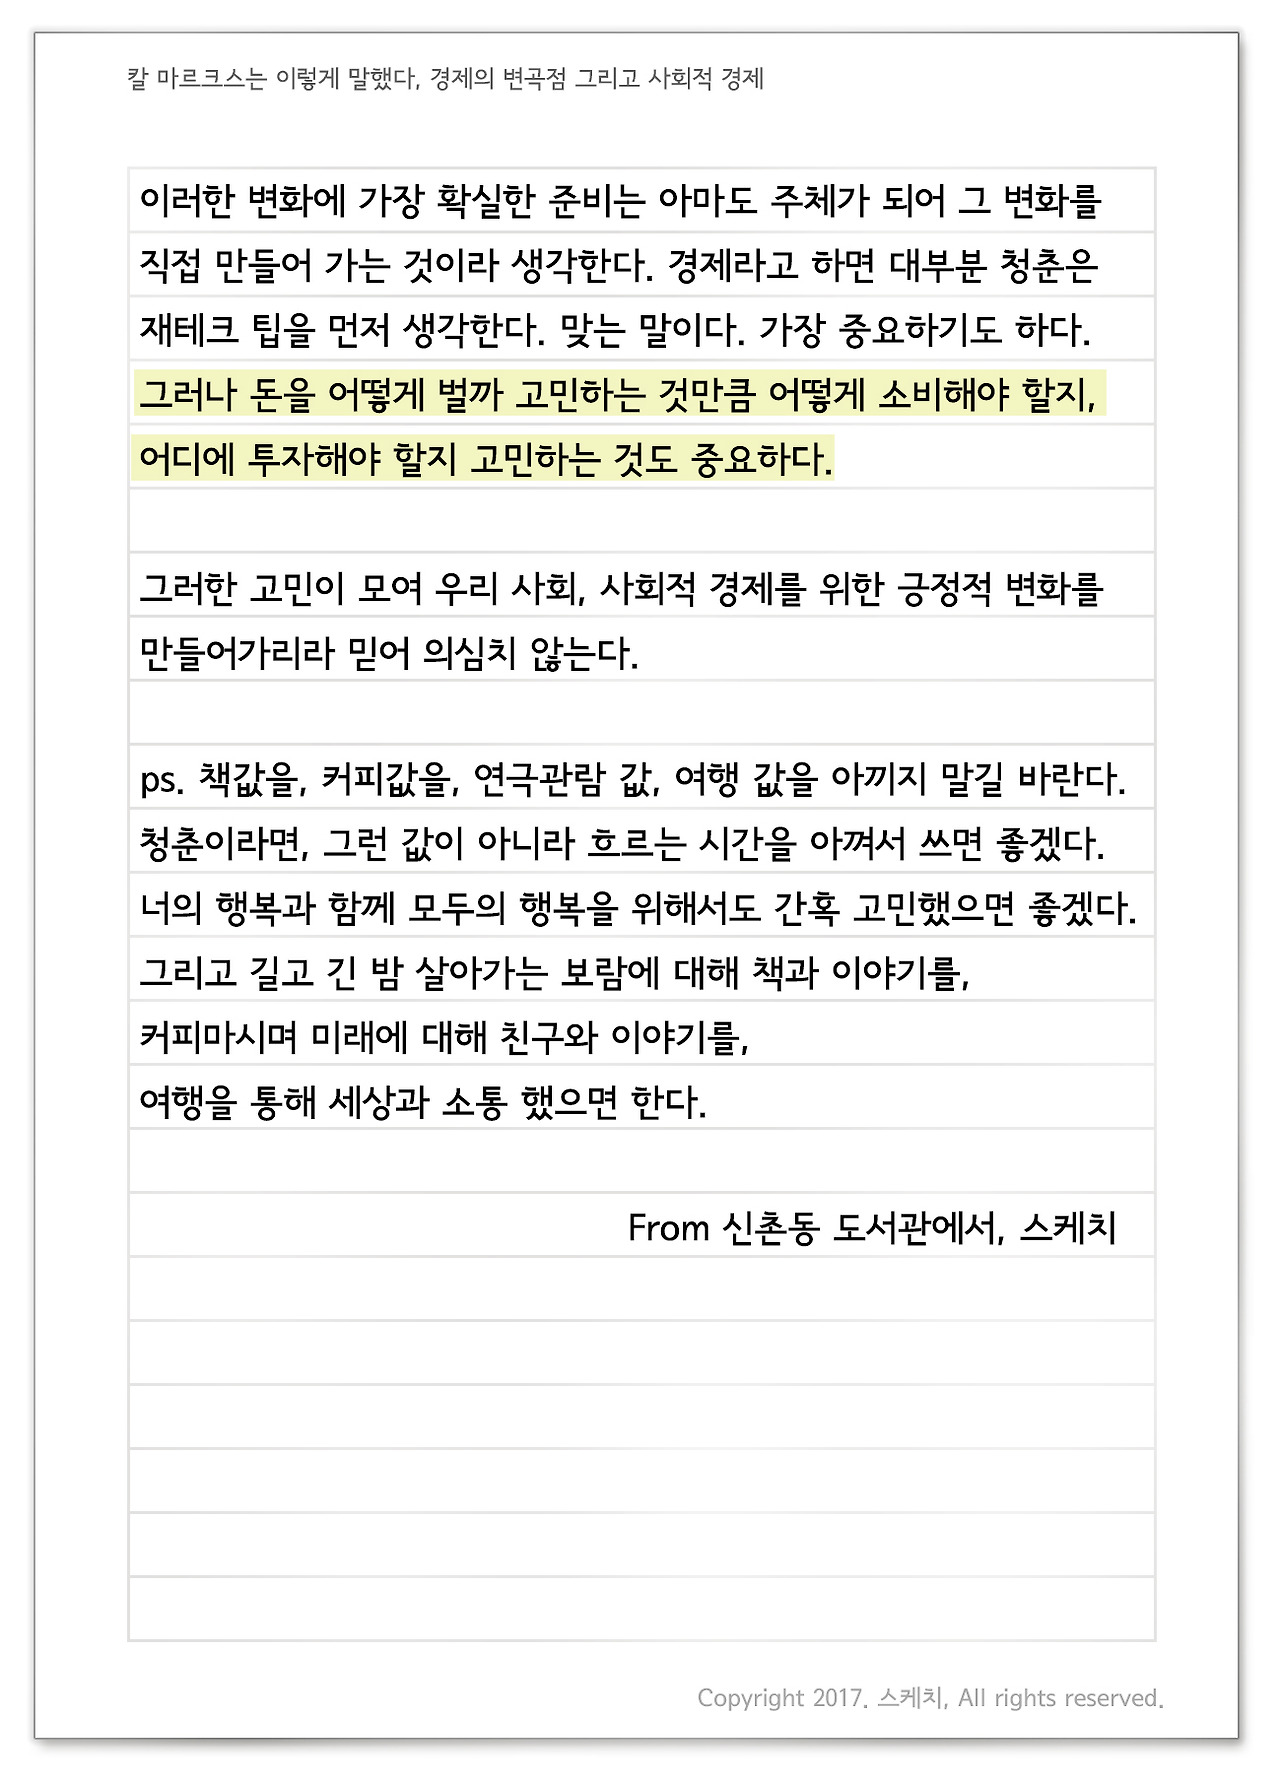 칼 마르크스는 이렇게 말했다, 경제의 변곡점 그리고 사회적 경제
이러한 변화에 가장 확실한 준비는 아마도 주체가 되어 그 변화를
직접 만들어 가는 것이라 생각한다. 경제라고 하면 대부분 청춘은
재테크 팁을 먼저 생각한다. 맞는 말이다. 가장 중요하기도 하다.
그러나 돈을 어떻게 벌까 고민하는 것만큼 어떻게 소비해야 할지,
어디에 투자해야 할지 고민하는 것도 중요하다.
그러한 고민이 모여 우리 사회, 사회적 경제를 위한 긍정적 변화를
만들어가리라 믿어 의심치 않는다.
ps. 책값을, 커피값을, 연극관람 값, 여행 값을 아끼지 말길 바란다.
청춘이라면, 그런 값이 아니라 흐르는 시간을 아껴서 쓰면 좋겠다.
너의 행복과 함께 모두의 행복을 위해서도 간혹 고민했으면 좋겠다.
그리고 길고 긴 밤 살아가는 보람에 대해 책과 이야기를,
커피마시며 미래에 대해 친구와 이야기를,
여행을 통해 세상과 소통 했으면 한다.
From 신촌동 도서관에서, 스케치
Copyright 2017. 스케치, All rights reserved.